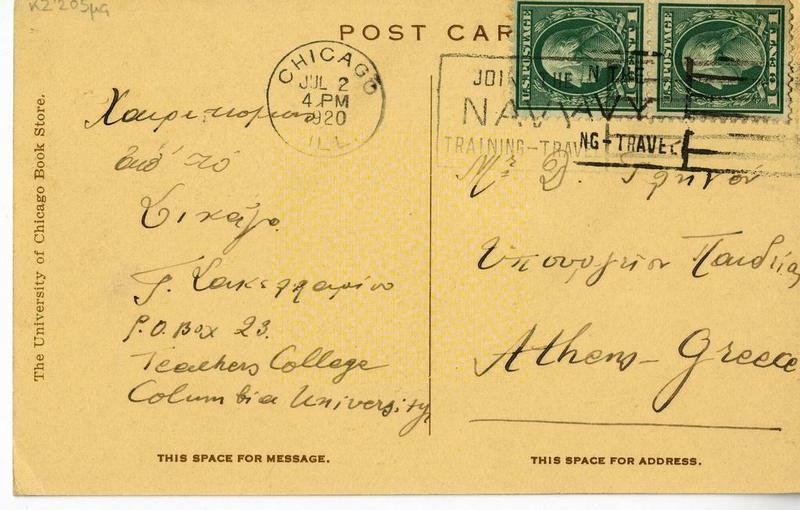 K2 205μg
POST CAR
U.S. POSTAGE
1 CENT 1
U.S. POSTAGE
1 CENT 1
CHICAGO
JUL 2
4 PM
1920
ILL.
JOIN THE
N THE
NAVY
VY
TRAINING-TRAVEL
NG-TRAVEL
The University of Chicago Book Store.
Χαιρετισμους
από το
Σικάγο.
Γ. Σακελλαρίου
P.O. Box 23.
Teachers College
Columbia University
Mr Δ. Γληνόν
Υπουργείον Παιδείας
Athens - Greece
THIS SPACE FOR MESSAGE.
THIS SPACE FOR ADDRESS.